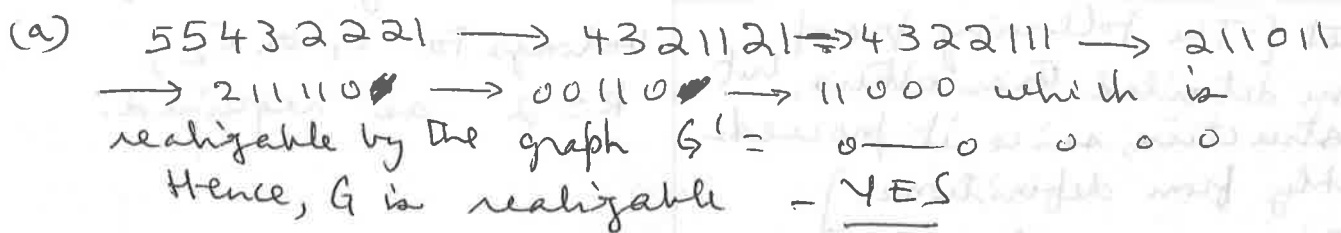 (a) 55432221 → 4321121 ⇒ 4322111 → 211011
→ 211110 → 00110 → 11000 which is
realizable by the graph G' = o—o o o o
Hence, G is realizable - YES